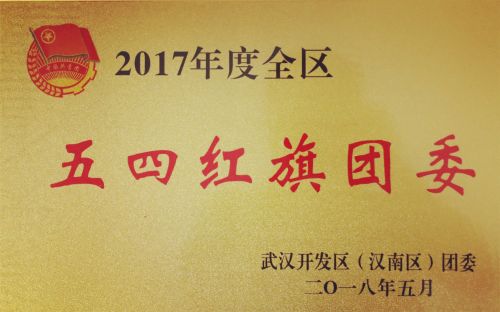 2017年度全区
五四红旗团委
武汉开发区（汉南区）团委
二〇一八年五月